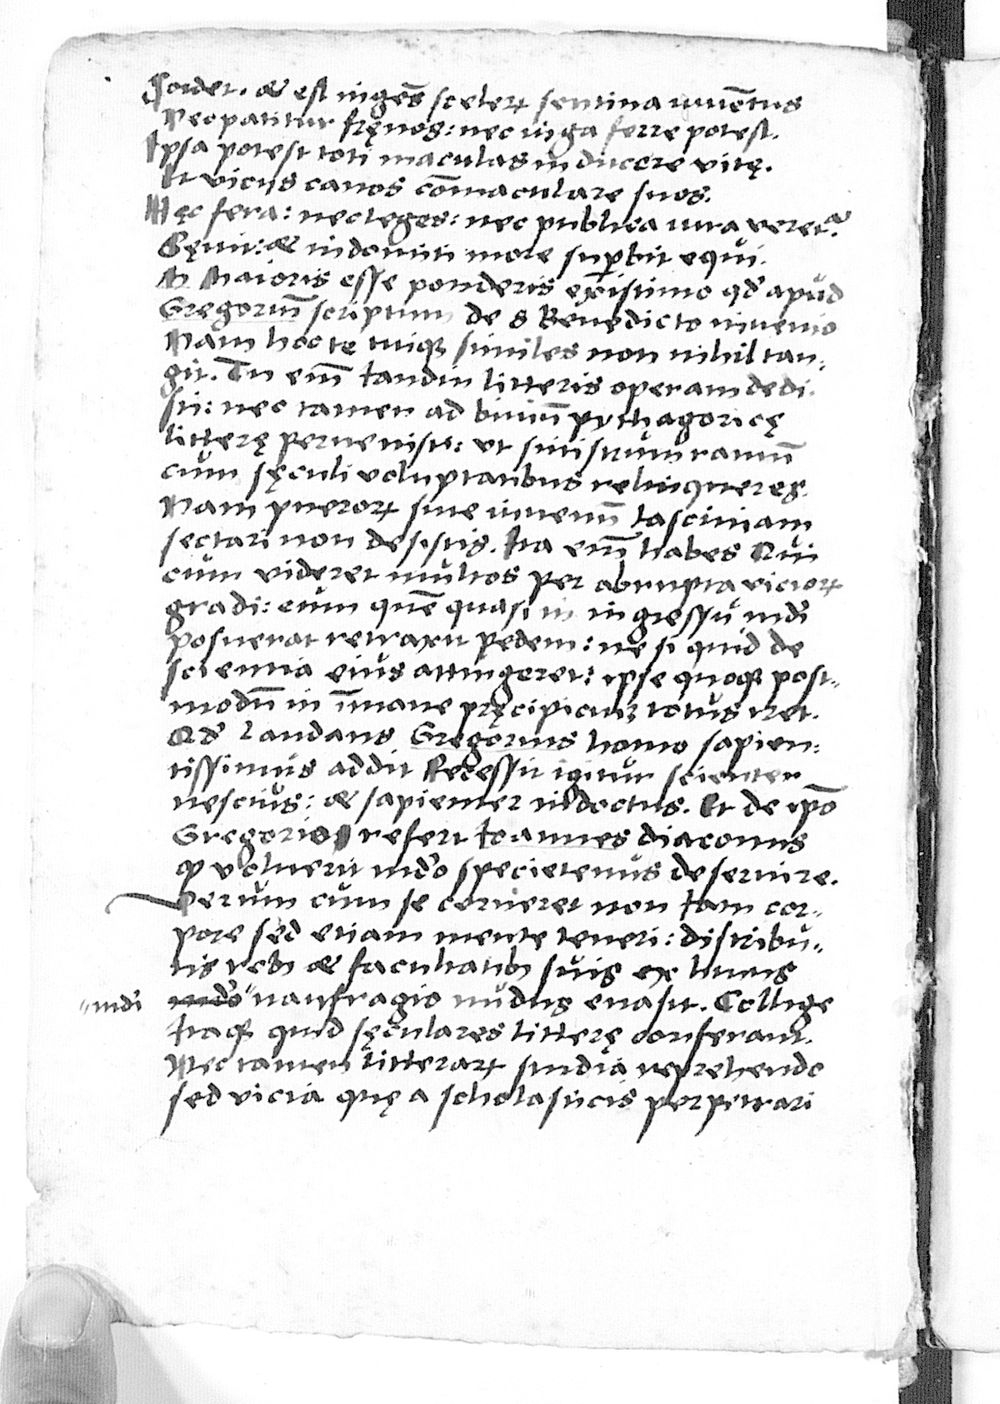 Sordet. & est ingēs sceleꝝ sentina iuuētus
Nec patitur fręnos: nec iuga ferre potest.
Ipsa potest toti maculas inducere vitę.
Et viciis canos cōmaculare suos.
Hęc fera: nec leges: nec publica iura veretᷣ.
Sęuit: & indomiti more suꝑbit equi.
Maioris esse ponderis existimo qđ apud
Gregoriū scriptum de S Benedicto inuenio
Nam hoc te tuiqꝫ similes non nihil tan:
git. Tu em̄ tandiu litteris operam dedi.
sti: nec tamen ad biuiū pythagoricę
litterę peruenisti: vt sinistrum ramū
cum sęculi voluptatibus relinqueres.
Nam pueroꝝ siue iuuenū lasciuiam
sectari non desistis. Ita em̄ habes Qui
cum videret multos per abrupta vicioꝝ
gradi: eum quē quasi in ingressu mūdi
posuerat retraxit pedem: ne si quid de
scientia eius attingeret: ipse quoqꝫ post-
modū in īmane pręcipicium totus iret.
Qđ laudans Gregorius homo sapien:
tissimus addit Recessit igitur scienter
nescius: & sapienter indoctus. Et de ipō
Gregorio refert Ioannes diaconus
ꝙ voluerit mūdo specietenus deseruire.
Verum cum se cerneret non tam cor-
pore sed etiam mente teneri: distribu-
tis rebꝫ & facultatibꝫ suis ex huius
"mūdi mūdo" naufragio nudus euasit. Collige
Itaqꝫ quid sęculares litterę conferant.
Nec tamen litteraꝝ studia reprehendo
sed vicia quę a scholasticis perpetrari